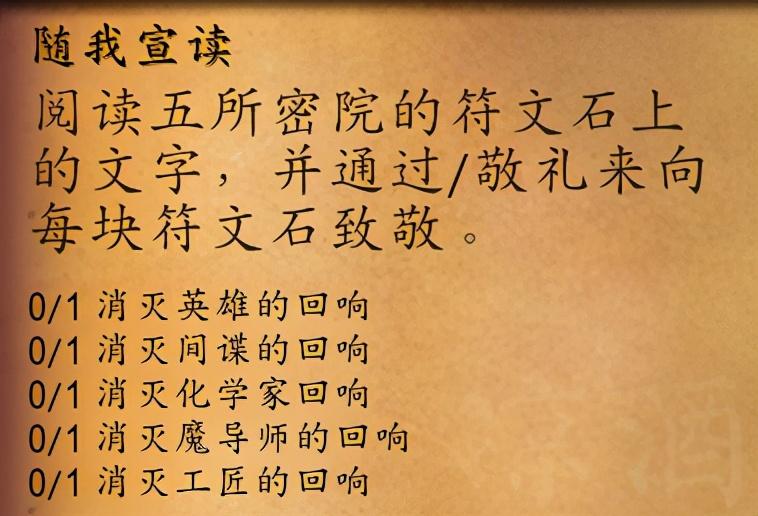 随我宣读
阅读五所密院的符文石上
的文字，并通过/敬礼来向
每块符文石致敬。
0/1 消灭英雄的回响
0/1 消灭间谍的回响
0/1 消灭化学家回响
0/1 消灭魔导师的回响
0/1 消灭工匠的回响